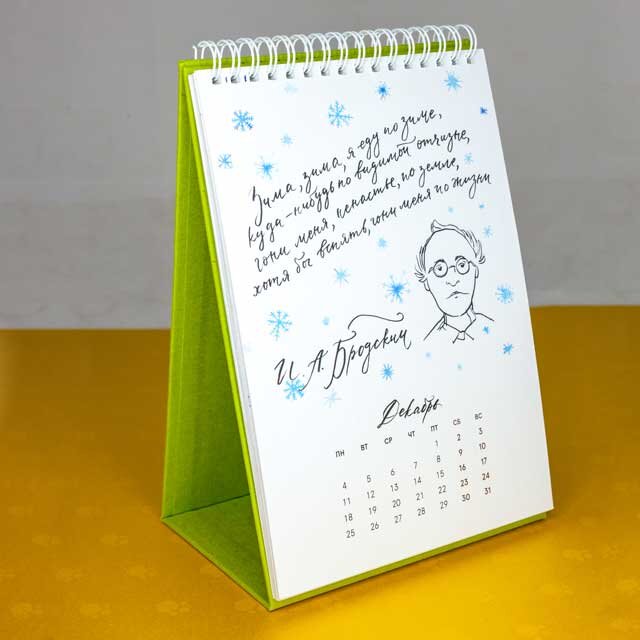 Зима, зима, я еду по зиме,
куда-нибудь по видимой отчизне,
гони меня, ненастье, по земле,
хотя бы вспять, гони меня по жизни
И. А. Бродский
Декабрь
ПН ВТ СР ЧТ ПТ СБ ВС
1 2 3
4 5 6 7 8 9 10
11 12 13 14 15 16 17
18 19 20 21 22 23 24
25 26 27 28 29 30 31